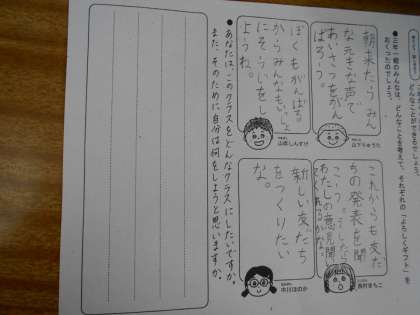 どんなことができるでしょう。
●三年一組のみんなは、どんなことを考えて、それぞれの「よろしくギフト」を
おくったのでしょう。
朝来たらみん
な元きな声で
あいさつをがん
ばろう。
山下りゅうた
ぼくもがんばる
からみんなもいっしょ
にそういをし
ようね。
山崎しんすけ
これからも友だ
ちの発表を聞
こう。そしたら
わたしの意見聞
いてくれるかな。
西村まちこ
新しい友だち
をつくりたい
な。
中川ほのか
●あなたは、このクラスをどんなクラスにしたいですか。
また、そのために自分は何をしようと思いますか。